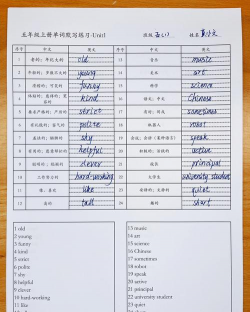 五年级上册单词默写练习-Unit1 班级 五(1) 姓名
序号 中文 英文 序号 中文 英文
1 老的；年纪大的 old 13 音乐 music
2 年轻的；岁数不大的 young 14 美术 art
3 滑稽的；可笑的 funny 15 科学 science
4 kind 16 语文；中文 Chinese
5 要求严格的；严厉的 strict 17 有时；间或 sometimes
6 有礼貌的；客气的 polite 18 机器人 robot
7 shy 19 speak
8 helpful 20 active
9 聪明的；聪颖的 clever 21 校长 principal
10 工作努力的 hard-working 22 大学生 university student
11 like 23 quiet
12 tall 24 short
1 old 13 music
2 young 14 art
3 funny 15 science
4 kind 16 Chinese
5 strict 17 sometimes
6 polite 18 robot
7 shy 19 speak
8 helpful 20 active
9 clever 21 principal
10 hard-working 22 university student
11 like 23 quiet